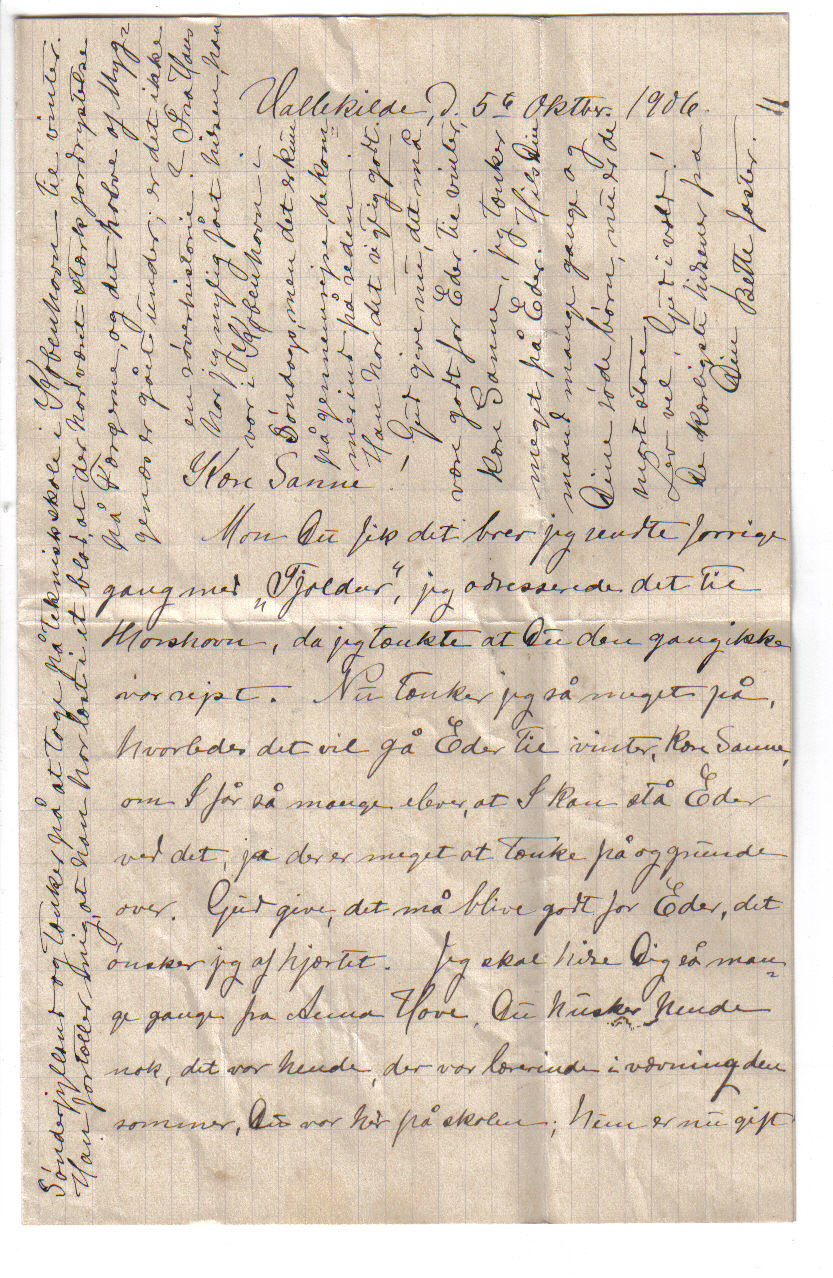 Vallekilde, d. 5te Oktbr. 1906.
Kære Sanne!
Mon Du fik det brev jeg sendte forrige
gang med „Tjaldur“, jeg adresserede det til
Thorshavn, da jeg tænkte at Du den gang ikke
var rejst. Nu tænker jeg så meget på,
hvorledes det vil gå Eder til vinter, kære Sanne,
om I får så mange elever, at I kan stå Eder
ved det, ja der er meget at tænke på og grunde
over. Gud give, det må blive godt for Eder, det
ønsker jeg af hjærtet. Jeg skal hilse Dig så man-
ge gange fra Anna Hove, Du husker hende
nok, det var hende, der var lærerinde i vævning den
sommer, Du var her på skolen; hun er nu gift
Sønderjylland og tænker på at tage på teknisk skole i København til vinter.
Han fortæller mig, at han har læst i et blad, at der har været stærk jordrystelse
på Færøerne, og det halve af Myg-
genæs er gået under; er det ikke
en røverhistorie? Fra Hans
har jeg nylig fået hilsen, han
var i København i
Søndags, men det er kun
på gennemrejse, de kom-
mer ind på reden.
Han har det rigtig godt.
Gud give nu, det må
være godt for Eder til vinter,
kære Sanne, jeg tænker
meget på Eder. Hils Din
mand mange gange og
Dine søde børn, nu er de
snart store.
Lev vel! Gud i vold!
De kærligste hilsener fra
Din Bette faster.